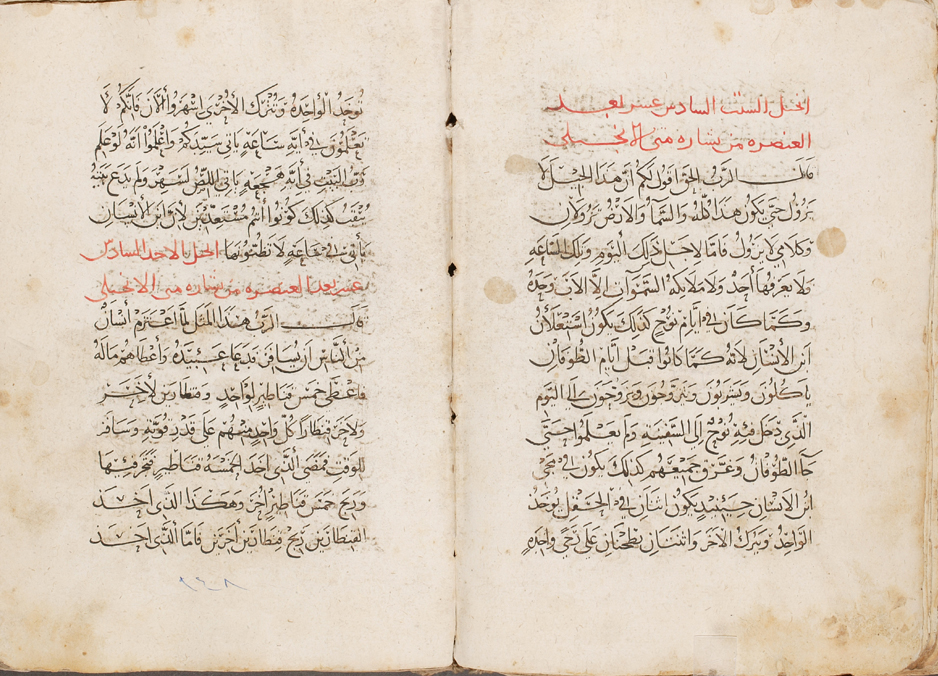 انجيل السبت السادس عشر بعد
العنصره من بشاره متى الانجيلي
قال الرب الحق اقول لكم ان هذا الجيل لا
يزول حتى يكون هذا كله والسما والارض يزولان
وكلامي لا يزول فاما لاجل ذلك اليوم وتلك الساعه
ولا يعرفها احد ولا ملايكه السموات الا الاب وحده
وكما كان في ايام نوح كذلك يكون استعلان
ابن الانسان لانه كما كانوا قبل ايام الطوفان
ياكلون ويشربون ويتزوجون ويزوجون الى اليوم
الذي دخل فيه نوح الى السفينه ولم يعلموا حتى
جا الطوفان وغرق جميعهم كذلك يكون في مجي
ابن الانسان حينيد يكون اثنان في الحقل يوخذ
الواحد ويترك الاخر واثنتان يطحنان على رحى واحده
توخد الواحده وتترك الاخرى اسهروا الان فانكم لا
تعلمون في ايه ساعه ياتي سيدكم واعلموا انه لو علم
رب البيت في ايه هجعه ياتي اللص لسهر ولم يدع بيته
ينقب كذلك كونوا انتم مستعدين لان ابن الانسان
ياتي في ساعه لا تظنونها انجيل الاحد السادس
عشر بعد العنصره من بشاره متى الانجيلي
قال الرب هذا المثل لما اعتزم انسان
من الناس ان يسافر فدعا عبيده واعطاهم ماله
فاعطى خمس قناطير لواحد وقنطارين لاخر
ولاخر قنطارا كل واحد منهم على قدر قوته وسافر
للوقت فمضى الذي اخد الخمسه قناطير فتجر فيها
وربح خمس قناطير اخر وهكذا الذي اخد
القنطارين ربح قنطارين اخرين فاما الذي اخد